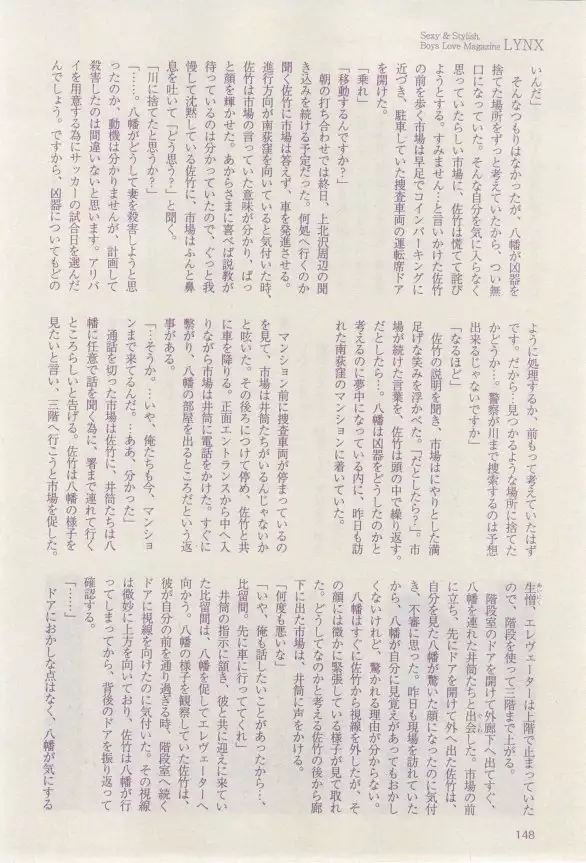 Sexy & Stylish,
Boys Love Magazine LYNX
いんだ」
　そんなつもりはなかったが、八幡が凶器を
捨てた場所をずっと考えていたから、つい無
口になっていた。そんな自分を気に入らなく
思っていたらしい市場に、佐竹は慌てて詫び
ようとする。すみません…と言いかけた佐竹
の前を歩く市場は早足でコインパーキングに
近づき、駐車していた捜査車両の運転席ドア
を開けた。
「乗れ」
「移動するんですか？」
　朝の打ち合わせでは終日、上北沢周辺の聞
き込みを続ける予定だった。何処へ行くのか
聞く佐竹に市場は答えず、車を発進させる。
進行方向が南荻窪を向いていると気付いた時、
佐竹は市場の言っていた意味が分かり、ぱっ
と顔を輝かせた。あからさまに喜べば説教が
待っているのは分かっていたので、ぐっと我
慢して沈黙している佐竹に、市場はふんと鼻
息を吐いて「どう思う？」と聞く。
「川に捨てたと思うか？」
「……。八幡がどうして妻を殺害しようと思
ったのか、動機は分かりませんが、計画して
殺害したのは間違いないと思います。アリバ
イを用意する為にサッカーの試合日を選んだ
んでしょう。ですから、凶器についてもどの
ように処理するか、前もって考えていたはず
です。だから…見つかるような場所に捨てた
かどうか…。警察が川まで捜索するのは予想
出来るじゃないですか」
「なるほど」
　佐竹の説明を聞き、市場はにやりとした満
足げな笑みを浮かべた。「だとしたら？」。市
場が続けた言葉を、佐竹は頭の中で繰り返す。
だとしたら…。八幡は凶器をどうしたのかと
考えるのに夢中になっている内に、昨日も訪
れた南荻窪のマンションに着いていた。
　マンション前に捜査車両が停まっているの
を見て、市場は井筒たちがいるんじゃないか
と呟いた。その後ろにつけて停め、佐竹と共
に車を降りる。正面エントランスから中へ入
りながら市場は井筒に電話をかけた。すぐに
繋がり、八幡の部屋を出るところだという返
事がある。
「…そうか。…いや、俺たちも今、マンショ
ンまで来てるんだ。…ああ、分かった」
　通話を切った市場は佐竹に、井筒たちは八
幡に任意で話を聞く為に、署まで連れて行く
ところらしいと告げる。佐竹は八幡の様子を
見たいと言い、三階へ行こうと市場を促した。
生憎、エレヴェーターは上階で止まっていた
ので、階段を使って三階まで上がる。
　階段室のドアを開けて外廊下へ出てすぐ、
八幡を連れた井筒たちと出会した。市場の前
に立ち、先にドアを開けて外へ出た佐竹は、
自分を見た八幡が驚いた顔になったのに気付
き、不審に思った。昨日も現場を訪れていた
から、八幡が自分に見覚えがあってもおかし
くないけれど、驚かれる理由が分からない。
　八幡はすぐに佐竹から視線を外したが、そ
の顔には微かに緊張している様子が見て取れ
た。どうしてなのかと考える佐竹の後から廊
下に出た市場は、井筒に声をかける。
「何度も悪いな」
「いや、俺も話したいことがあったから…、
比留間。先に車に行っててくれ」
　井筒の指示に頷き、彼と共に迎えに来てい
た比留間は、八幡を促してエレヴェーターへ
向かう。八幡の様子を観察していた佐竹は、
彼が自分の前を通り過ぎる時、階段室へ続く
ドアに視線を向けたのに気付いた。その視線
は微妙に上方を向いており、佐竹は八幡が行
ってしまってから、背後のドアを振り返って
確認する。
「……」
　ドアにおかしな点はなく、八幡が気にする
148